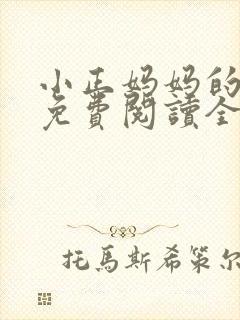 小正妈妈的
免費閱讀全
托馬斯希策尔